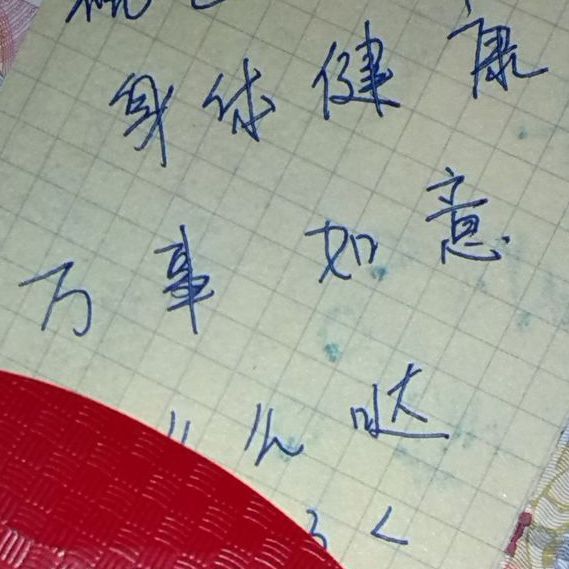 身体健康
万事如意
么哒